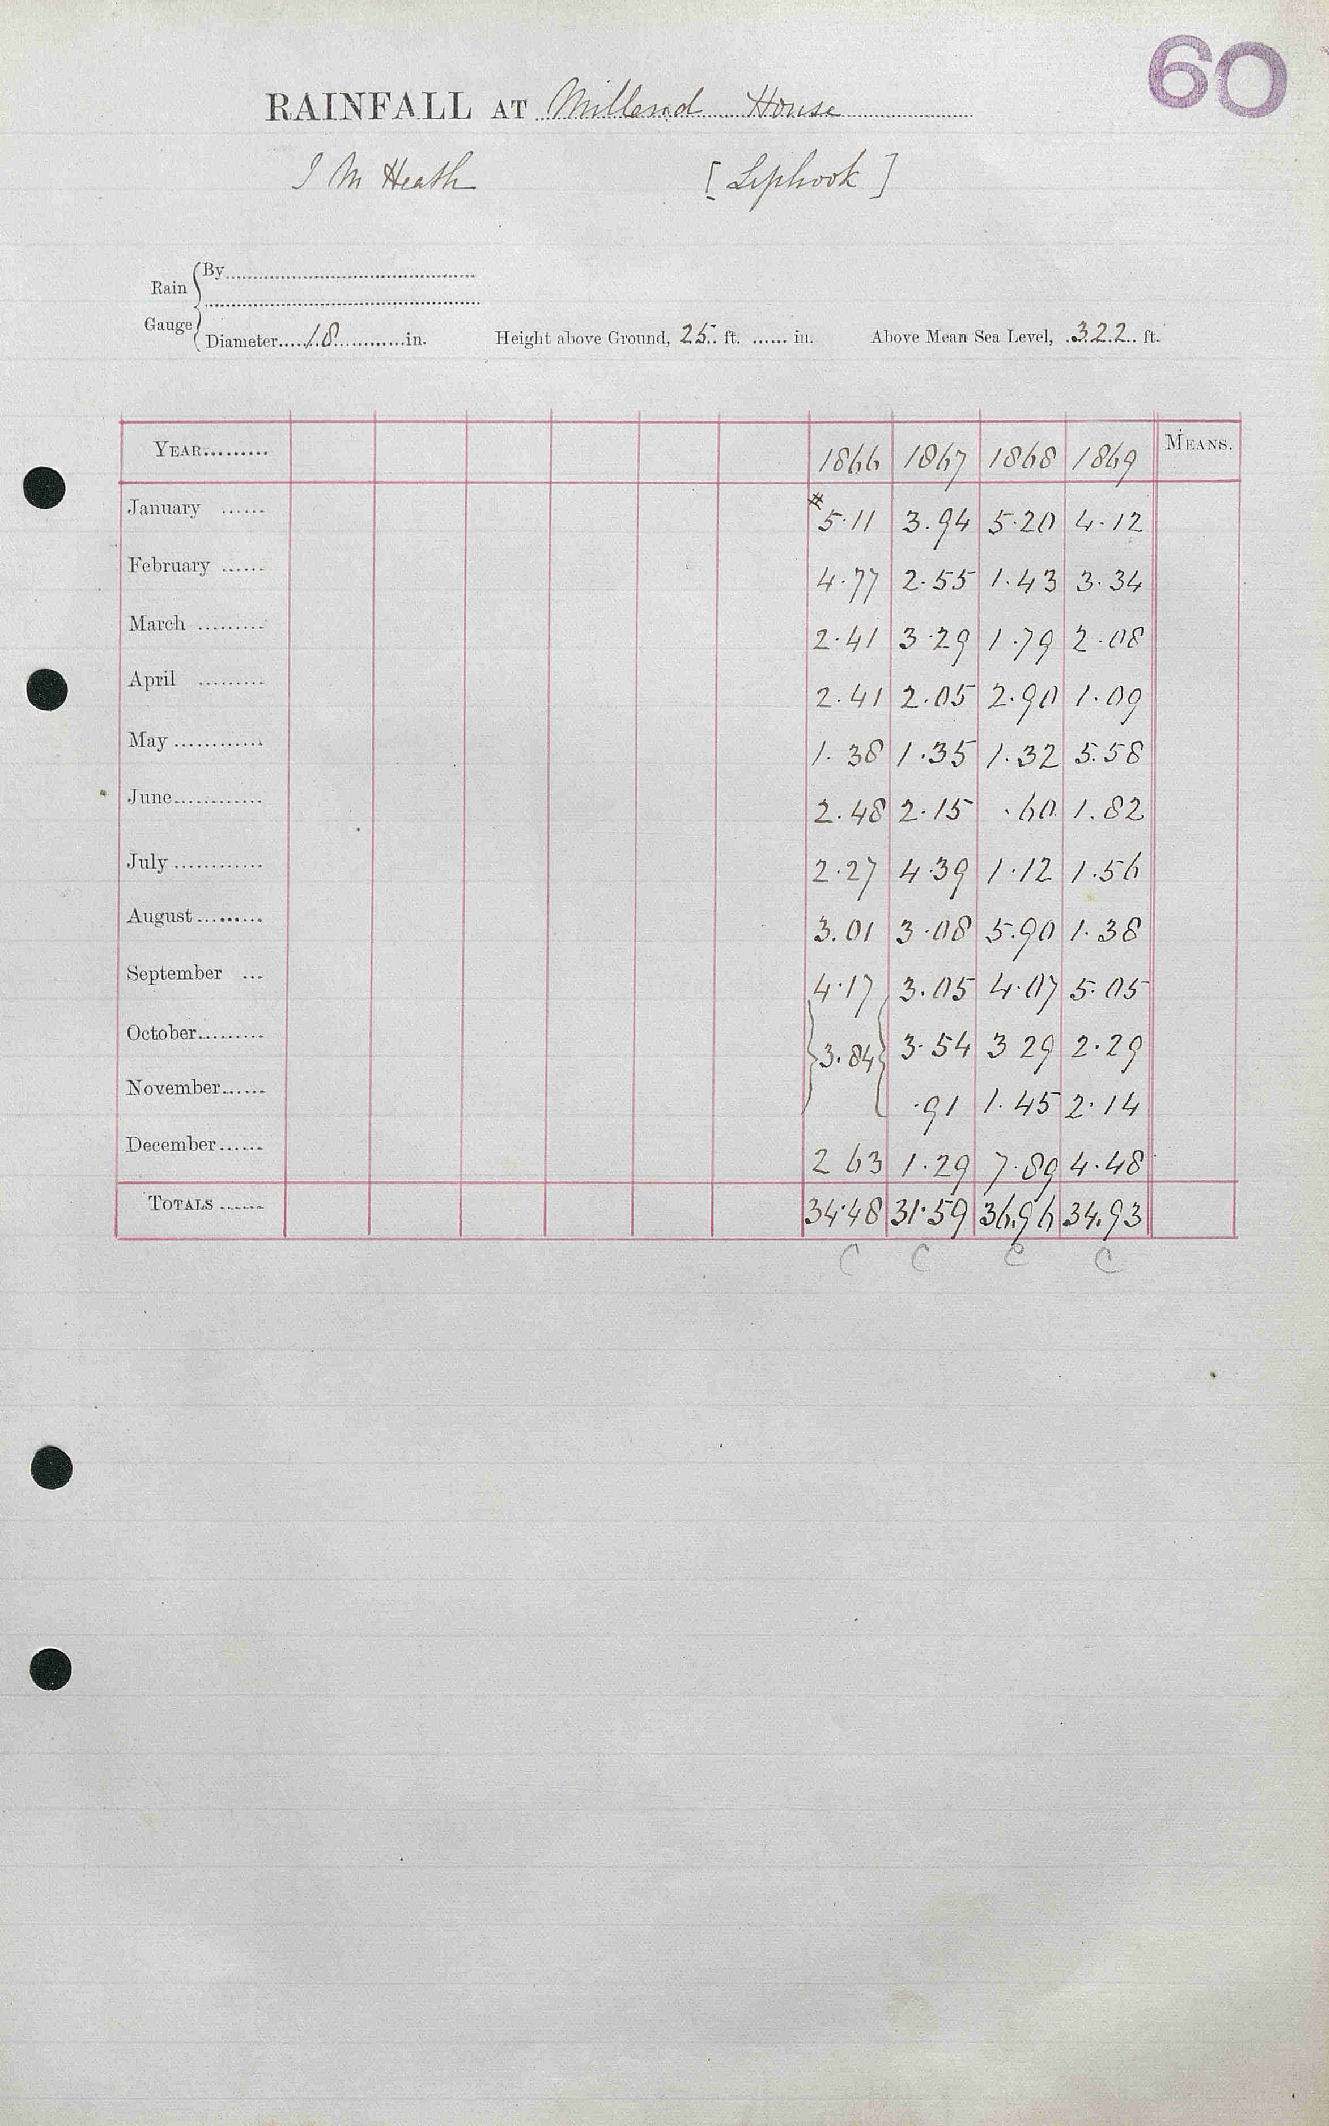 60
RAINFALL AT Milland House
J M Heath [Liphook]
Rain Gauge { By
Diameter 18 in. Height above Ground, 25 ft. ...... in. Above Mean Sea Level, 322 ft.
YEAR 1866 1867 1868 1869 MEANS.
January #5.11 3.94 5.20 4.12
February 4.77 2.55 1.43 3.34
March 2.41 3.29 1.79 2.08
April 2.41 2.05 2.90 1.09
May 1.38 1.35 1.32 5.58
June 2.48 2.15 .60 1.82
July 2.27 4.39 1.12 1.56
August 3.01 3.08 5.90 1.38
September 4.17 3.05 4.07 5.05
October }3.84{ 3.54 3 29 2.29
November .91 1.45 2.14
December 2 63 1.29 7.89 4.48
TOTALS 34.48 31.59 36.96 34.93
C C C C